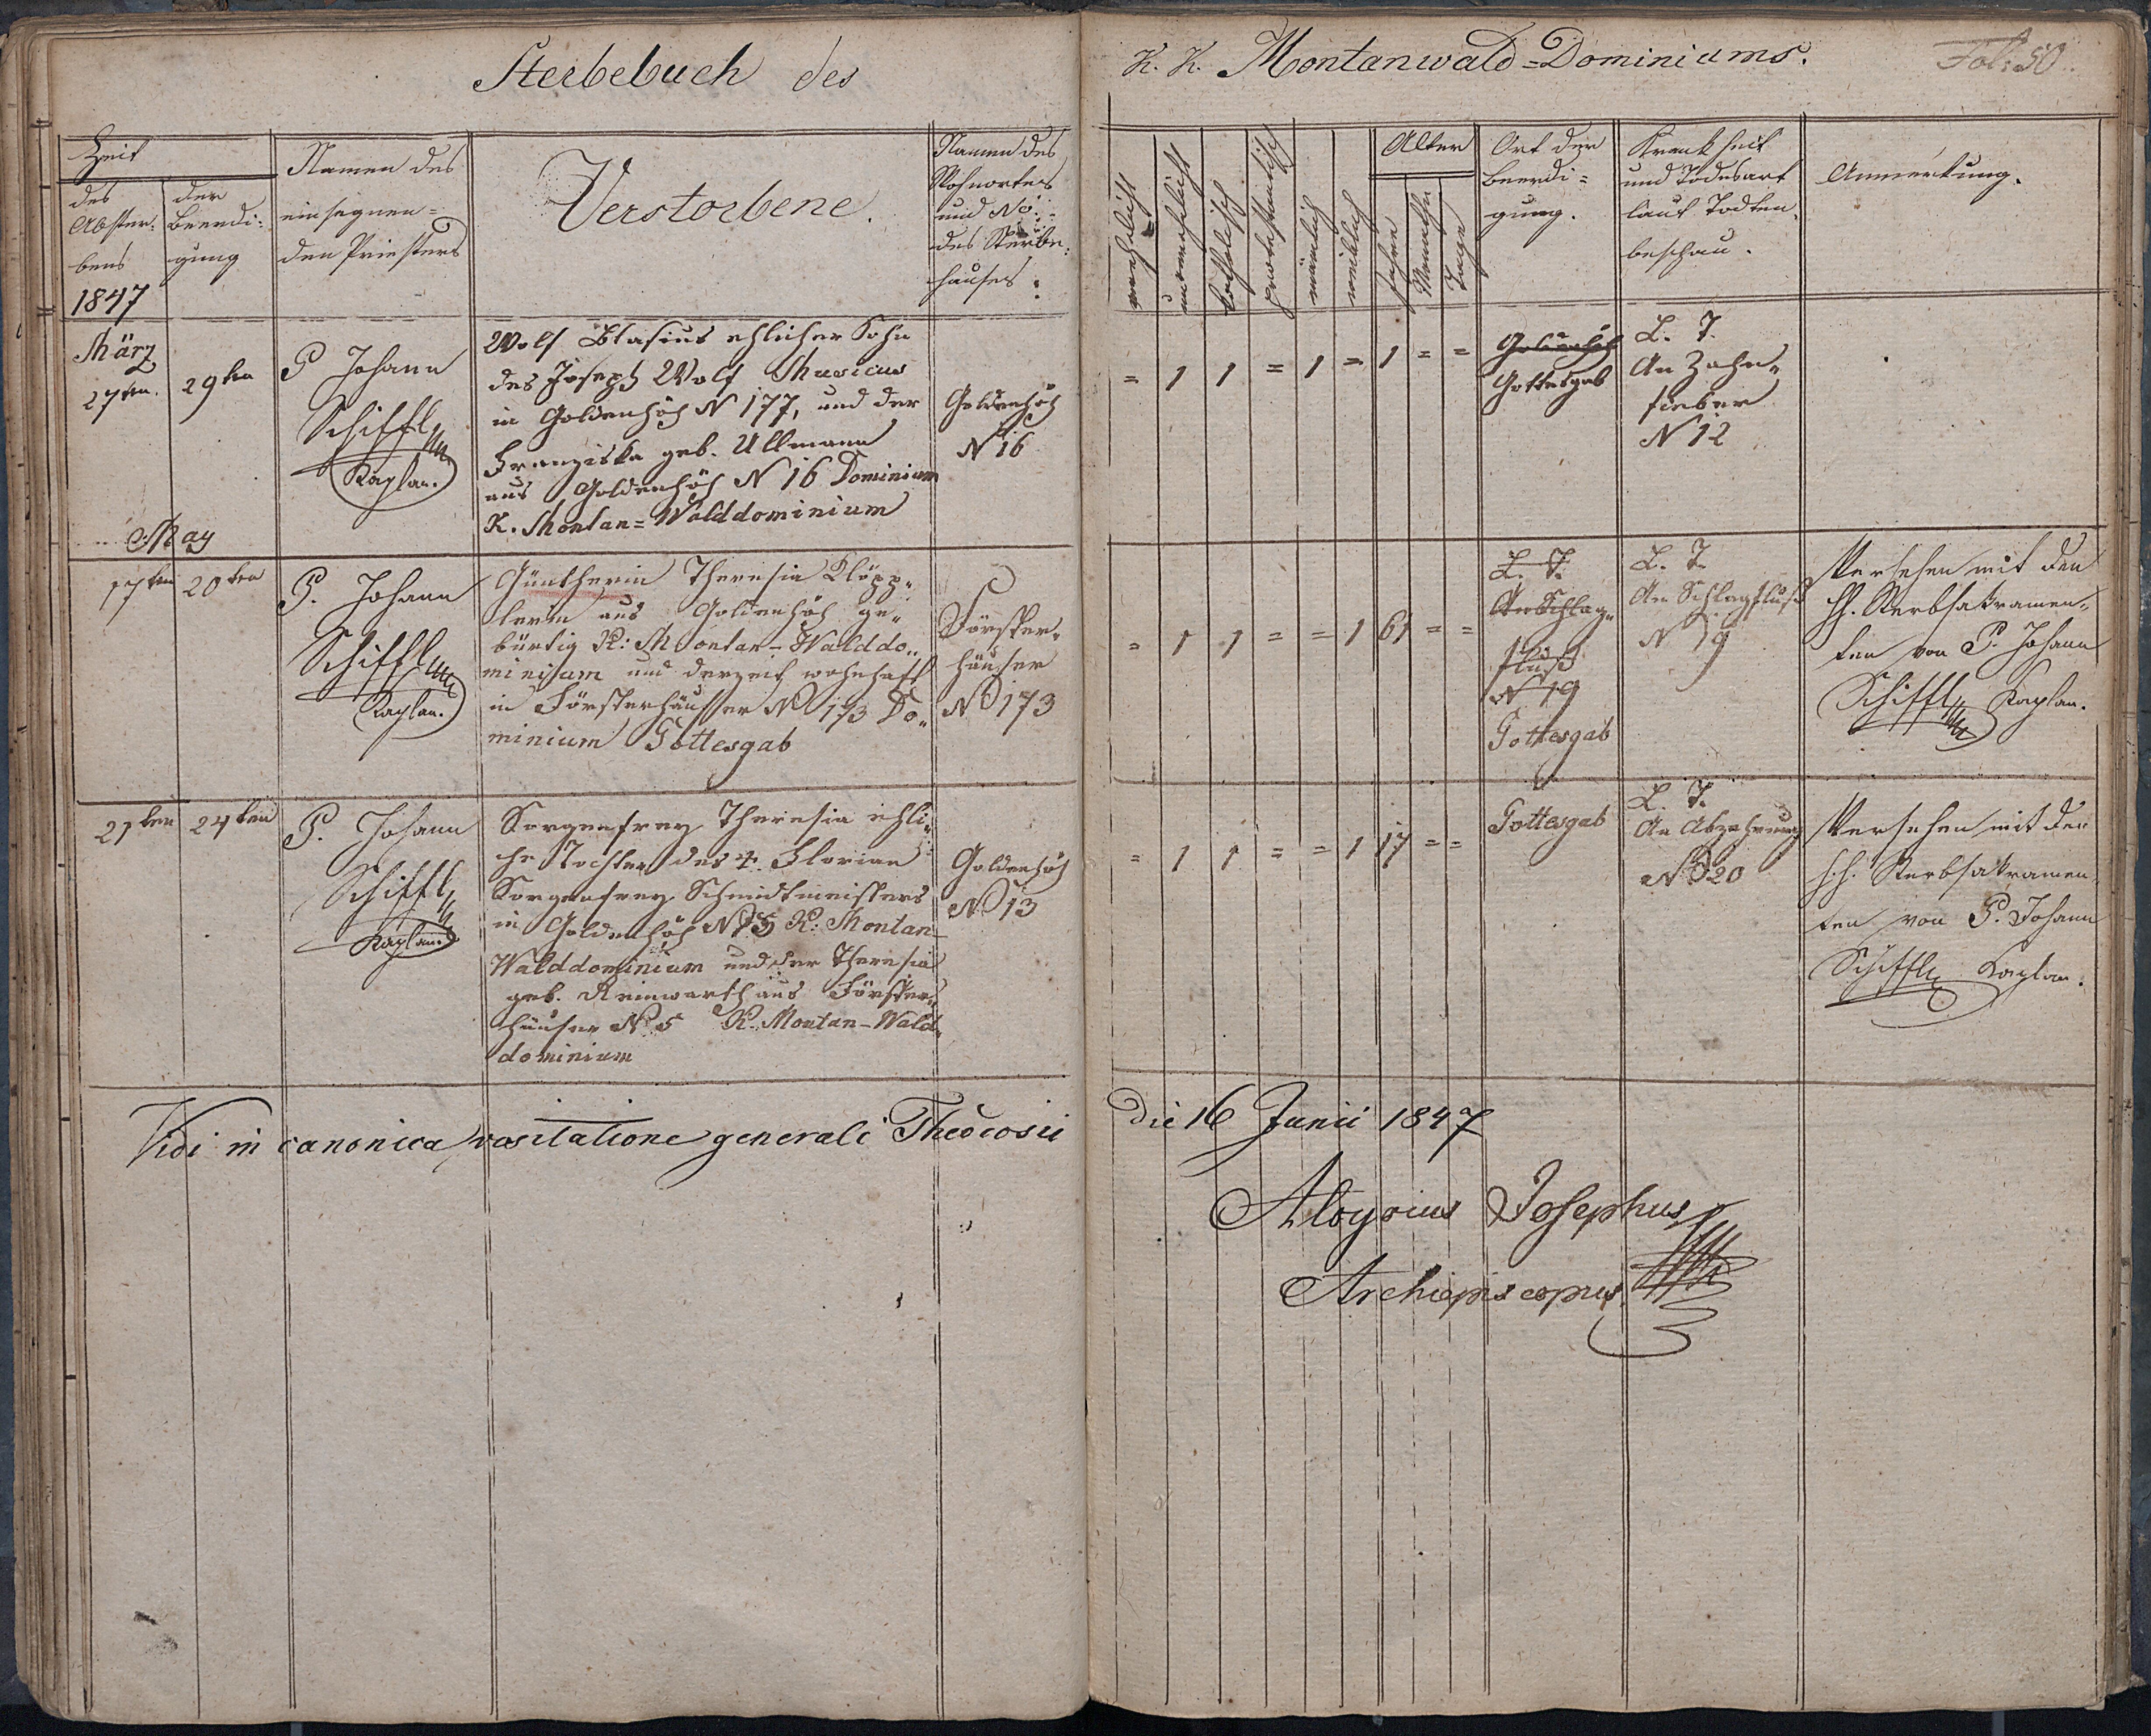 Sterbebuch des
K. K. Montanwald=Dominiums.
Fol: 50.
Zeit
des Abster- bens
der Beerdi- gung
1847
Namen des
einsegnen=
den Priesters
Verstorbene.
Namen des
Wohnortes
und No:
des Sterbe-
hauses:
verehelicht
unverehelicht
katholisch
protestantisch
männlich
weiblich
Alter
Jahre
Monathe
Tage
Ort der
Beerdi=
gung.
Krankheit
und Todesart
laut Todten-
beschau.
Anmerkung.
März
27ten.
29ten
P Johann
Schiffl
Kaplan.
Wolf Blasius ehlicher Sohn
des Joseph Wolf Musicus
in Goldenhöh N 177, und der
Franziska geb. Ullmann
aus Goldenhöh N 16 Dominium
K. Montan=Walddominium
Goldenhöh
N 16
= 1 1 = 1 = 1 = =
Goldenhöh
Gottesgab
L. T.
An Zahn-
fieber
N 12
May
17ten
20ten
P. Johann
Schiffl
Kaplan.
Güntherin Theresia Klöpp-
lerin aus Goldenhöh ge-
bürtig K: Montan-Walddo-
minium und derzeit wohnhaft
in Försterhäusser N 173 Do-
minium Gottesgab
Förster-
häuser
N 173
= 1 1 = = 1 61 = =
L. T.
An Schlag-
fluß
N 19
Gottesgab
L. T.
An Schlagfluß
N 19
Versehen mit den
hh. Sterbsakramen-
ten von P. Johann
Schiffl Kaplan.
21ten
24ten
P. Johann
Schiffl
Kaplan
Sorgenfrey Theresia ehli-
che Tochter des †. Florian
Sorgenfrey Schmidtmeisters
in Goldenhöh N 13 K: Montan-
Walddominium und der Theresia
geb. Reinwarth aus Förster-
häuser N. 5 K. Montan-Wald-
dominium
Goldenhöh
N 13
= 1 1 = = 1 17 = =
Gottesgab
L. T.
An Abzehrung
N 20
Versehen mit den
h.h. Sterbsakramen-
ten von P. Johann
Schiffl Kaplan.
Vidi in canonica visitatione generali
die 16 Junii 1847
Aloysius Josephus
Archiepiscopus